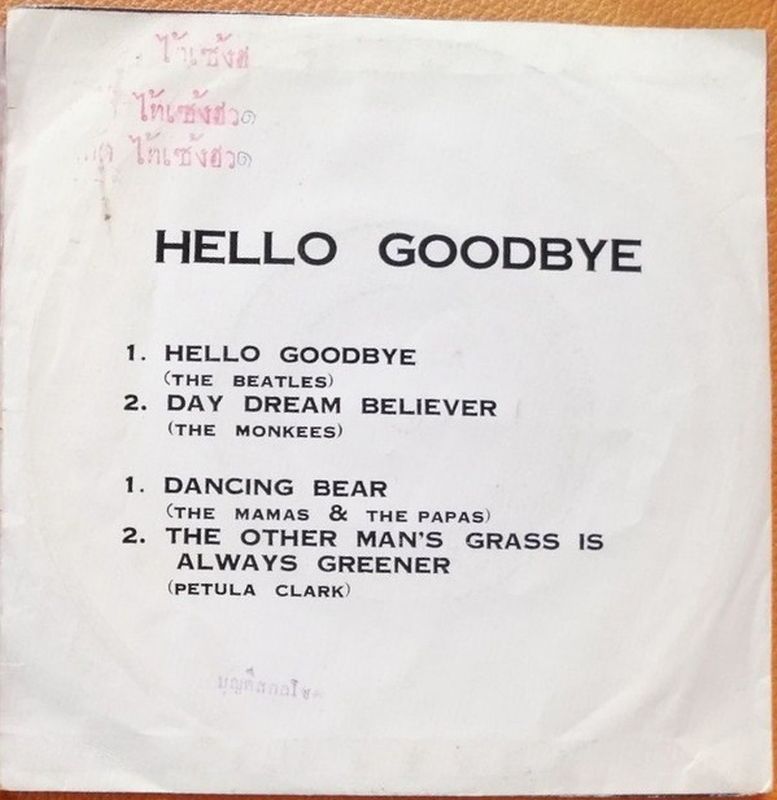 ไท้เซ้งฮ
ไท้เซ้งฮวด
ไท้เซ้งฮวด
HELLO GOODBYE
1. HELLO GOODBYE
(THE BEATLES)
2. DAY DREAM BELIEVER
(THE MONKEES)
1. DANCING BEAR
(THE MAMAS & THE PAPAS)
2. THE OTHER MAN'S GRASS IS
ALWAYS GREENER
(PETULA CLARK)